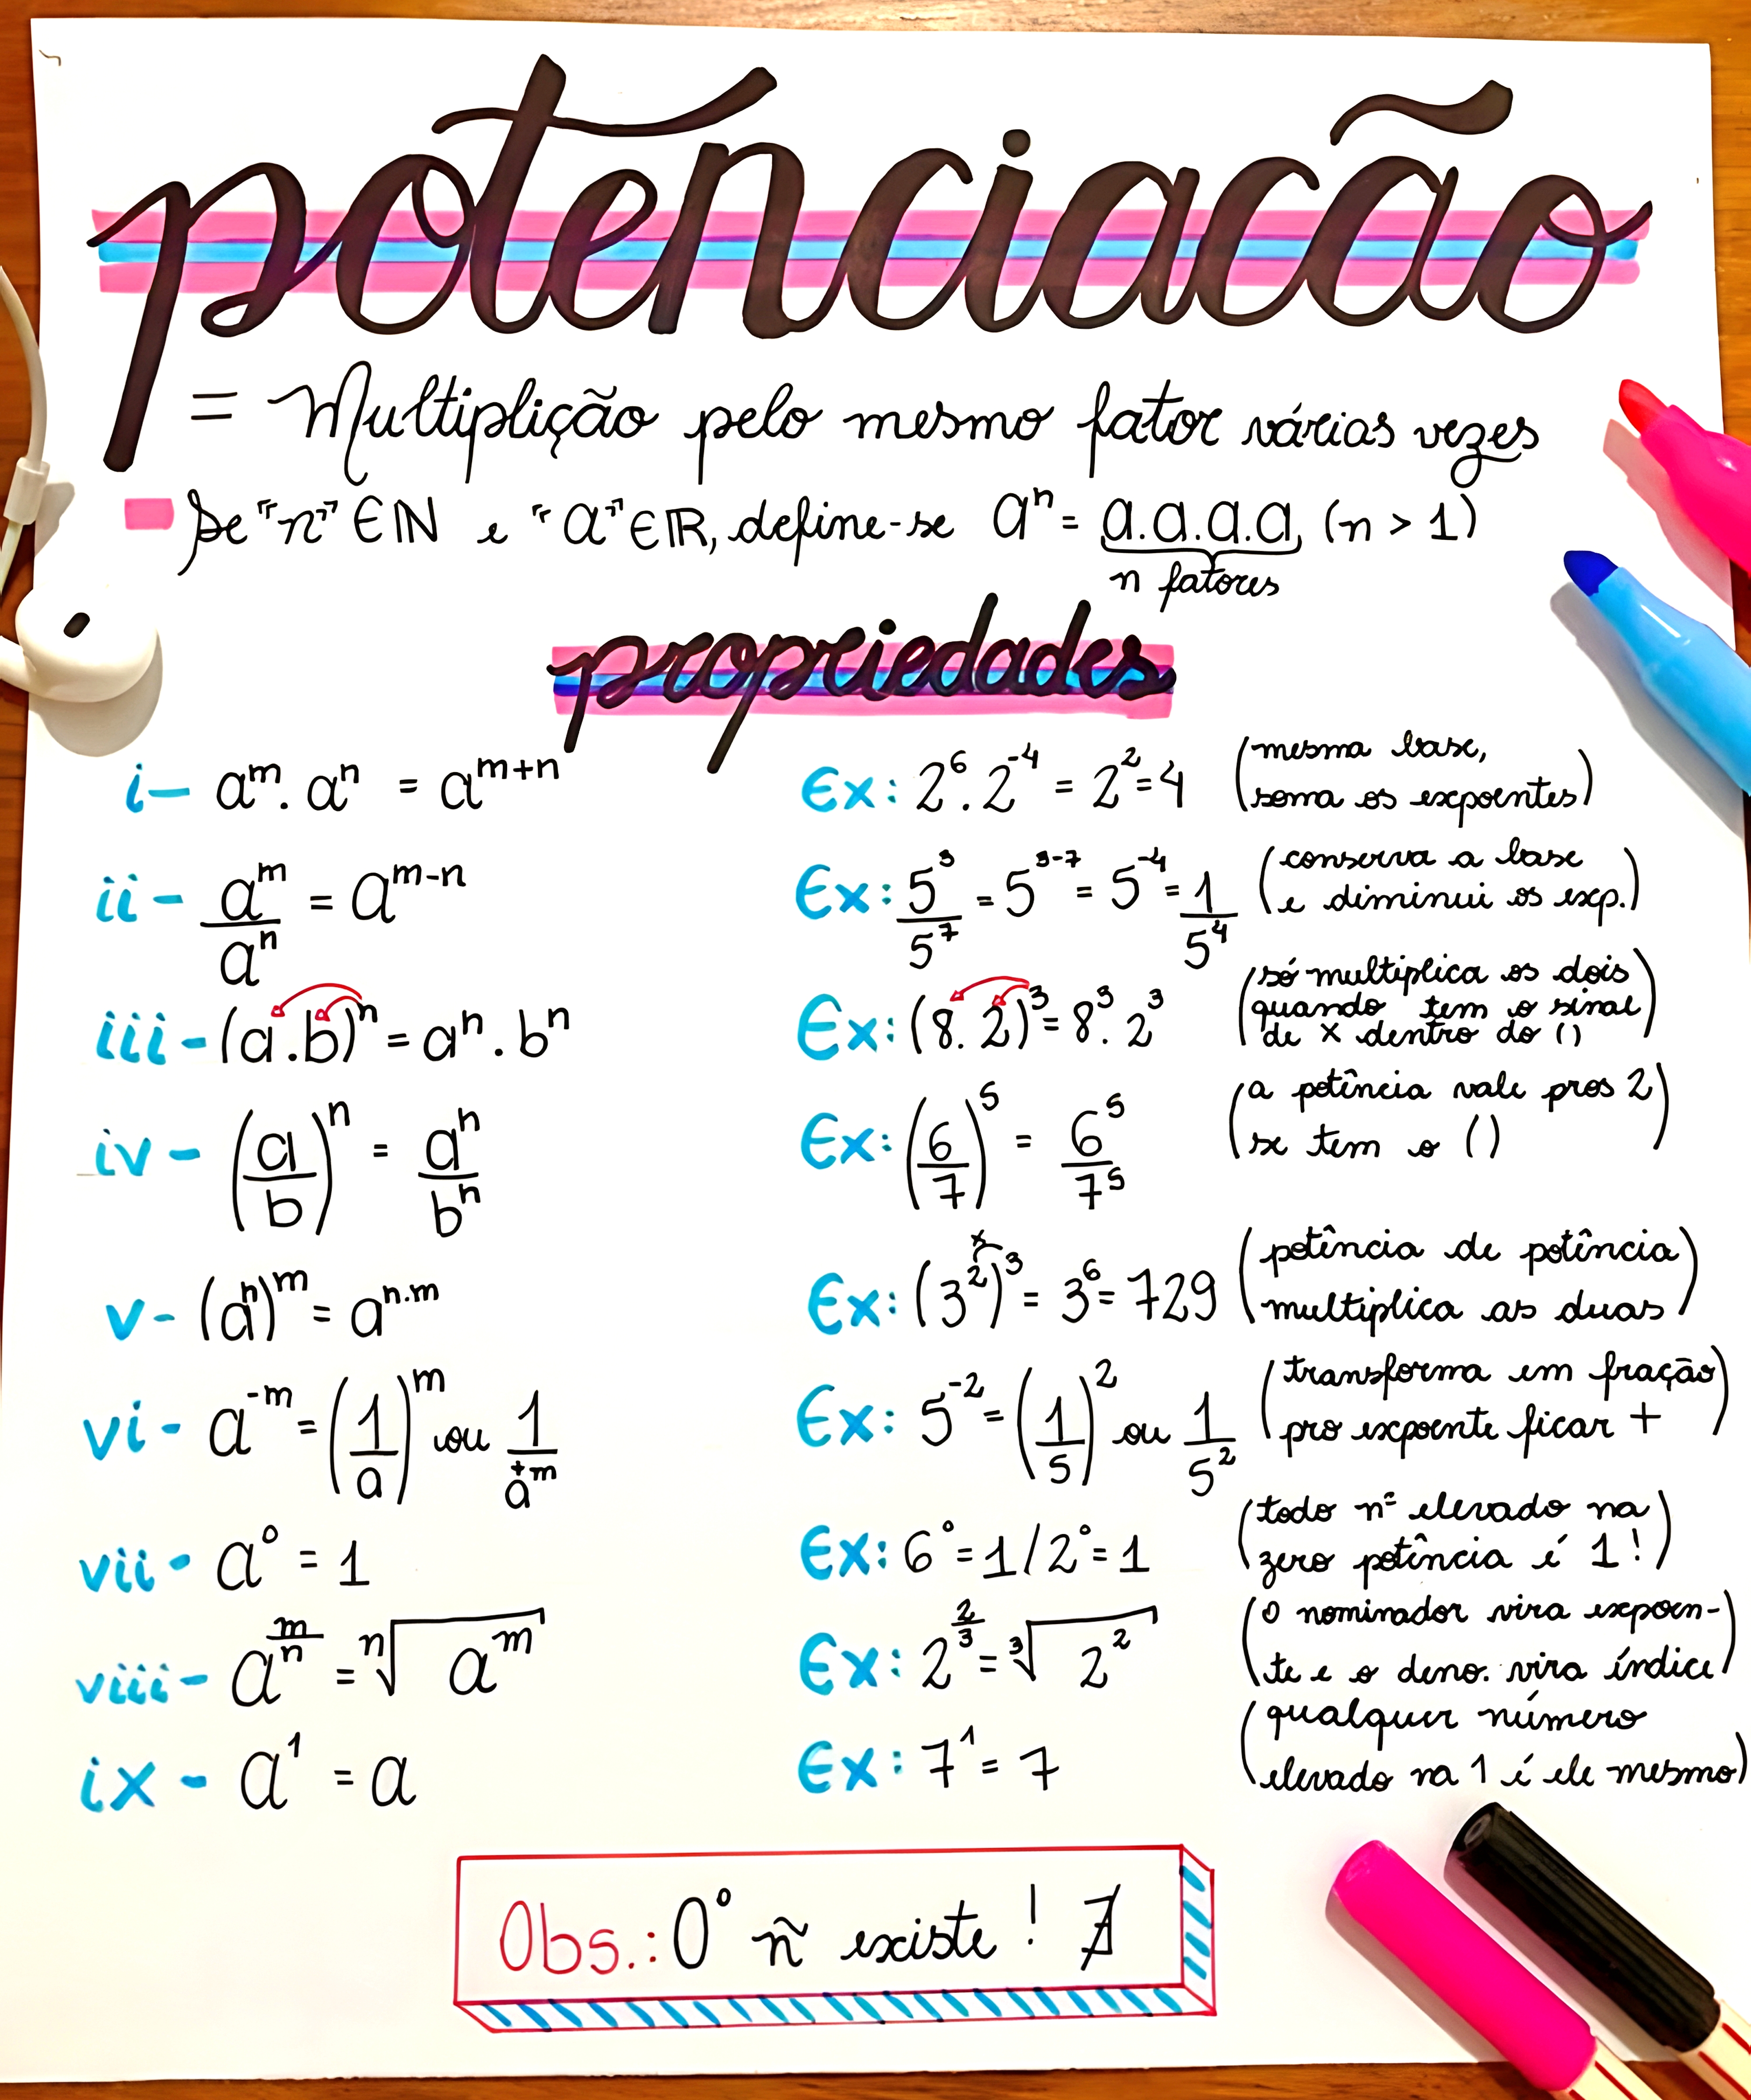 potenciacão
= Multiplição pelo mesmo fator várias vezes
Se "n" ∈ ℕ e "a" ∈ ℝ, define-se aⁿ = a.a.a.a, (n > 1)
n fatores
propriedades
i- a^m . a^n = a^(m+n) Ex: 2^6 . 2^-4 = 2^2 = 4 (mesma base,
soma os expoentes)
ii- a^m/a^n = a^(m-n) Ex: 5^3/5^7 = 5^(3-7) = 5^-4 = 1/5^4 (conserva a base
e diminui os exp.)
iii- (a.b)^n = a^n . b^n Ex: (8.2)^3 = 8^3 . 2^3 (só multiplica os dois
quando tem o sinal
de x dentro do ())
iv- (a/b)^n = a^n/b^n Ex: (6/7)^5 = 6^5/7^5 (a potência vale pros 2
se tem o ())
v- (a^n)^m = a^(n.m) Ex: (3^2)^3 = 3^6 = 729 (potência de potência
x
multiplica as duas)
vi- a^-m = (1/a)^m ou 1/a^+m Ex: 5^-2 = (1/5)^2 ou 1/5^2 (transforma em fração
pro expoente ficar +)
vii- a^0 = 1 Ex: 6^0 = 1 / 2^0 = 1 (todo nº elevado na
zero potência é 1!)
viii- a^(m/n) = ⁿ√a^m Ex: 2^(2/3) = ³√2^2 (o nominador vira expoen-
te e o deno. vira índice)
ix- a^1 = a Ex: 7^1 = 7 (qualquer número
elevado na 1 é ele mesmo)
Obs.: 0^0 ñ existe! ∄